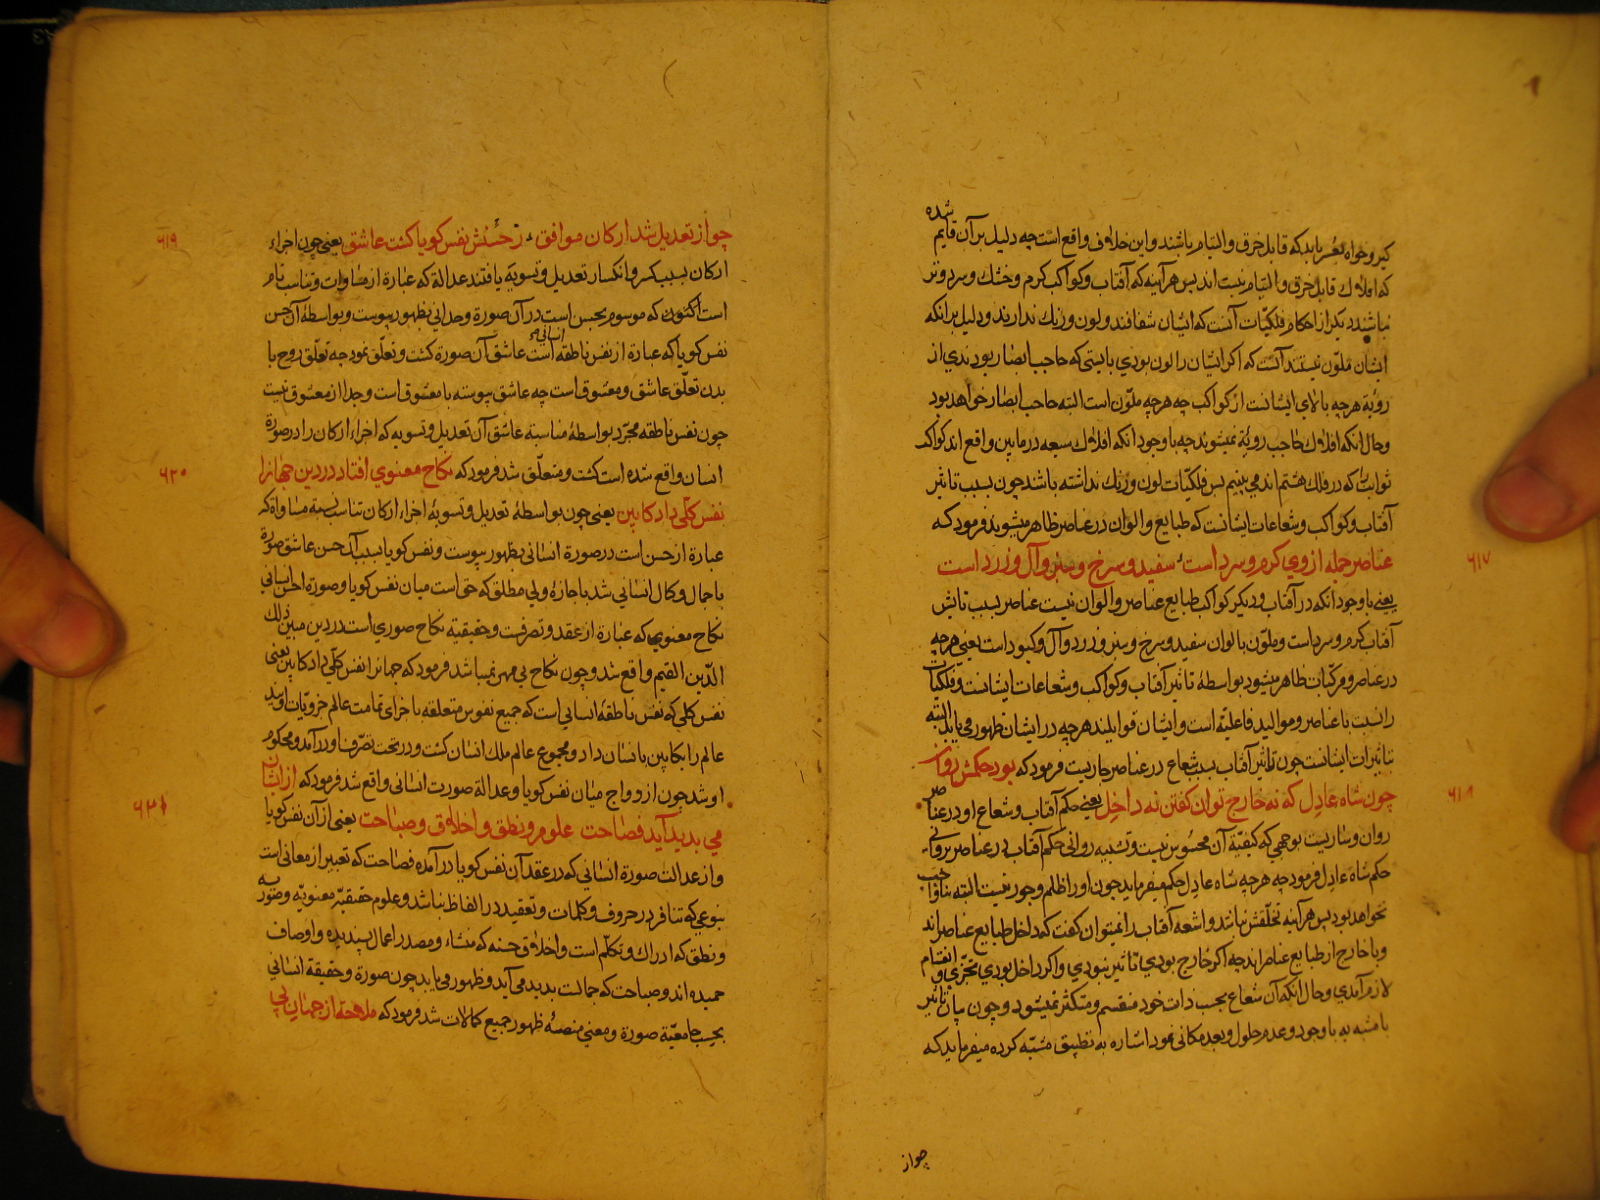 شده
كیر و خواه تغیر باید که قابل خرق و التیام باشند و این خلاف واقع است چه دلیل بر آن قایم
که افلاك قابل خرق و التیام نیست اند پس هرآینه که آفتاب و کواکب کرم و خشك و سرد و تر
نباشند دیکر از احکام فلکیّات آنست که ایشان شفافند و لون و رنك ندارند و دلیل برانکه
ایشان ملوّن نیستند آنست که اکر ایشان را لون بودي بایستی که حاجب ابصار بودندی از
رویة هرچه بالای ایشانست از کواکب چه هرچه ملوّن است البته حاجب ابصار خواهد بود
و حال انکه افلاك حاجب رویة نمیشوند چه با وجود انکه افلاك سبعه درمابین واقع اند کواکب
ثوابت را که در فلك هشتم اند می بینیم پس فلکیّات لون و رنك نداشته باشد چون بسبب تاثیر
آفتاب و کواکب و شعاعات ایشانست که طبایع و الوان در عناصر ظاهر میشوند فرمود که
عناصر جمله از وي کرم و سرد است سفید و سرخ و سبز و آل و زرد است
٦١٧
یعنی با وجود آنکه در آفتاب و دیکر کواکب طبایع عناصر و الوان نیست عناصر بسبب تابش
آفتاب کرم و سرد است و ملوّن بالوان سفید و سرخ و سبز و زرد و آل و کبود است یعنی هرچه
در عناصر و مرکّبات ظاهر میشود بواسطهٔ تاثیر آفتاب و کواکب و شعاعات ایشانست و فلکیّات
را نسبت با عناصر و موالید فاعلیّة است و ایشان قوابلند هرچه در ایشان ظهور می یابد البتّه
تاثیرات ایشانست چون تاثیر آفتاب بسبب شعاع در عناصر جاریست فرمود که بود حکمش روان
چون شاه عادل که نه خارج توان کفتن نه داخل یعنی حکم آفتاب و شعاع او در عناصر
٦١٨
روان و ساریست بوجهی که کیفیّة آن محسوس نیست و تشبیه روانی حکم آفتاب در عناصر بروانی
حکم شاه عادل فرمود چه هرچه شاه عادل حکم میفرماید چون او را ظلم و جور نیست البته ناواجب
نخواهد بود پس هرآینه تخلّفش نباشد و اشعه آفتاب را نمیتوان کفت که داخل طبایع عناصر اند
و یا خارج از طبایع عناصر اند چه اکر خارج بودي تاثیر نبودي و اکر داخل بودي تجزّي و انقسام
لازم آمدي و حال انکه آن شعاع بحسب ذات خود منقسم و متکثر نمیشود و چون بیان تاثیر
با مشبه به با وجود و عدم حلول و بعد مکانی نمود اشاره به تطبیق مشبّه کرده میفرماید که
چواز
چواز تعدیل شد ارکان موافق ز حسنش نفس کویا کشت عاشق یعنی چون اجزاء
٦١٩
ارکان بسبب کسر و انکسار تعدیل و تسویة یافتند عدالة که عبارة از مساوات و تناسب تام
است اکنون که موسوم بحسن است در آن صورة وحدانی بظهور پیوست و بواسطهٔ آن حسن
نفس کویا که عبارة از نفس ناطقه انسانی است عاشق آن صورة کشت و تعلّق نمود چه تعلّق روح با
بدن تعلّق عاشق و معشوق است چه عاشق پیوسته با معشوق است و جدا از معشوق نیست
چون نفس ناطقه مجرّد بواسطهٔ مناسبة عاشق آن تعدیل و تسویه که اجزاء ارکان را در صورة
انسان واقع شده است کشت و متعلّق شد فرمود که نکاح معنوي افتاد در دین جهانرا
٦٢٠
نفس کلّي داد کابین یعنی چون بواسطهٔ تعدیل و تسویهٔ اجزاء ارکان تناسب نسبه مساواة که
عبارة از حسن است در صورة انسانی بظهور پیوست و نفس کویا بسبب آن حسن عاشق صورة
با جمال و کمال انسانی شد باجازهٔ ولی مطلق که حق است میان نفس کویا و صورة احسن انسانی
نکاح معنوي که عبارة از عقد و تصرفست و حقیقیة نکاح صوري است در دین مبین ذلك
الدّین القیم واقع شد و چون نکاح بی مهر نمیباشد فرمود که جهانرا نفس کلّي داد کابین یعنی
نفس کلی که نفس ناطقهٔ انسانی است که جمیع نفوس متعلقه باجزای تمامت عالم جزویات اویند
عالم را بکابین بانسان داد و مجموع عالم ملك انسان کشت و در تحت تصرّف او درآمد و محکوم
او شد چون ازدواج میان نفس کویا و عدالة صورت انسانی واقع شد فرمود که از ایشان
می بدید آید فصاحت علوم و نطق و اخلاق و صباحت یعنی از آن نفس کویا
٦٢١
و از عدالت صورة انسانی که در عقد آن نفس کویا درآمده فصاحت که تعبیر از معانی است
بنوعی که تنافر در حروف و کلمات و تعقید در الفاظ نباشد و علوم حقیقیّه معنویّه و صوریه
و نطق که ادراك و تکلّم است و اخلاق حسنه که منشاء و مصدر اعمال پسندیده و اوصاف
حمیده اند و صباحت که جمالست بدید می آید و ظهور می یابد چون صورة و حقیقة انسانی
بحسب جامعیّة صورة و معنی منصهٔ ظهور جمیع کمالات شد فرمود که ملاحة از جهان بي